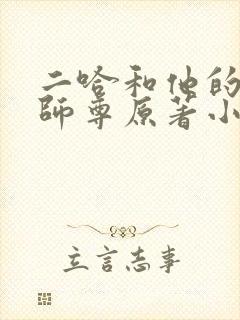 二哈和他的
師尊原著小
立言志事